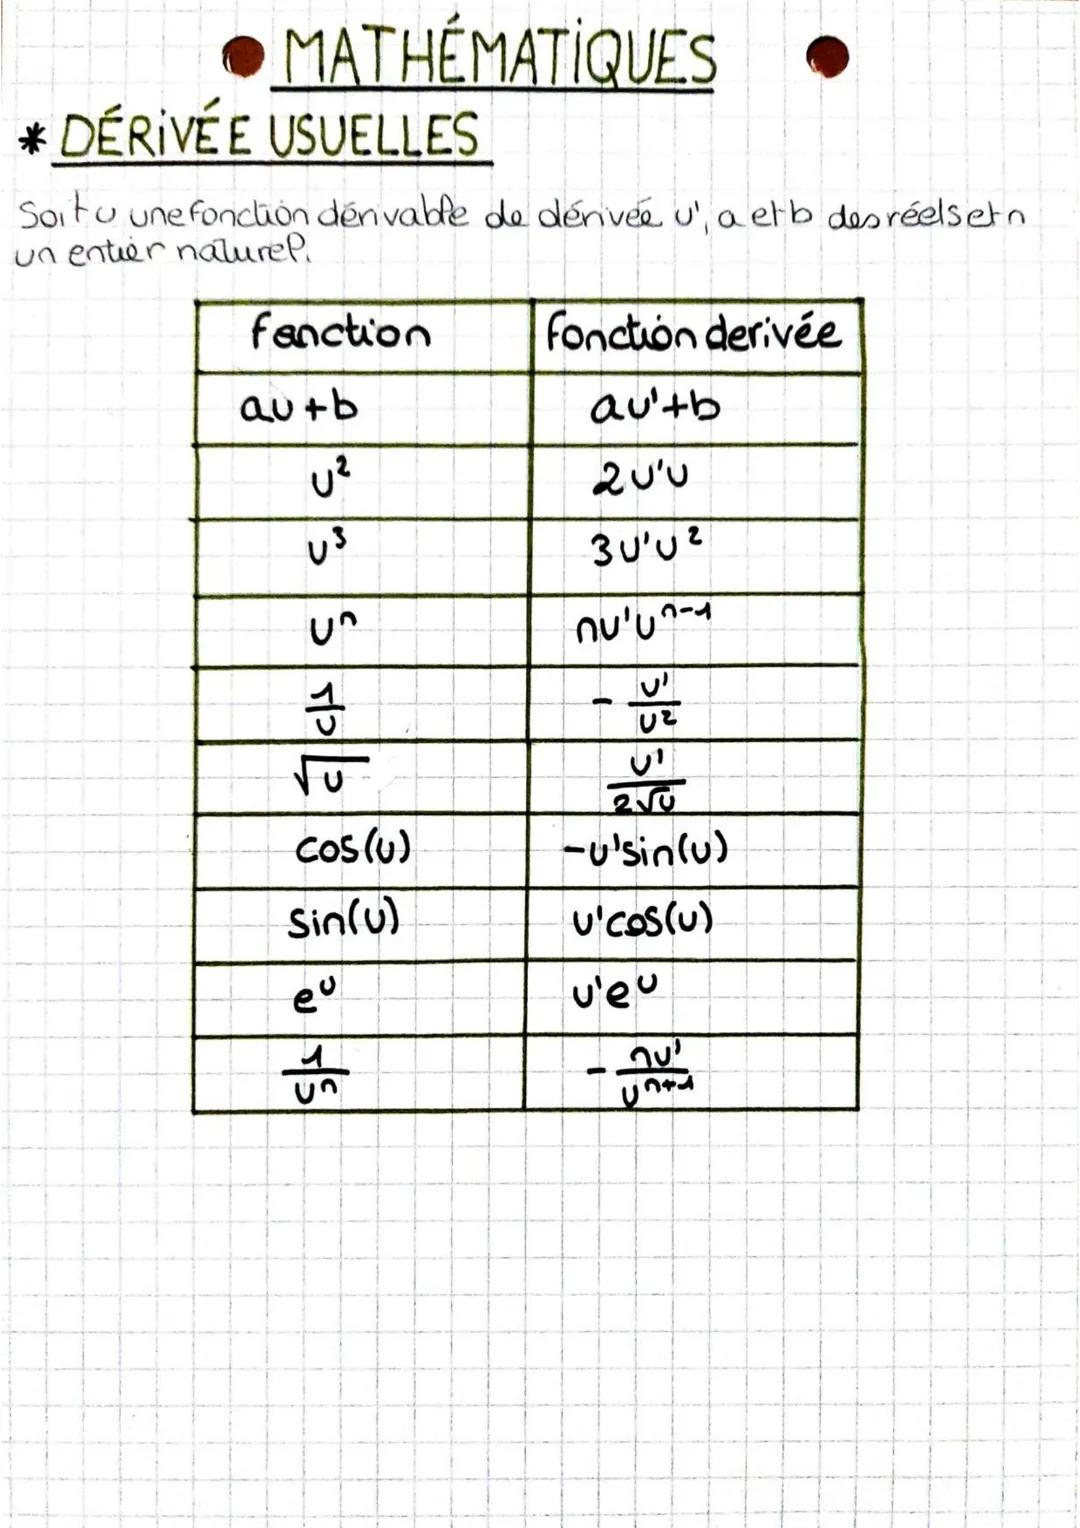 MATHÉMATIQUES
* DÉRIVÉE USUELLES
Soit u une fonction dérivable de dérivée u', a et b des réels et n
un entier naturel.
fonction fonction derivée
au+b au'+b
u² 2u'u
u³ 3u'u²
uⁿ nu'uⁿ⁻¹
1/u -u'/u²
√u u'/2√u
cos(u) -u'sin(u)
sin(u) u'cos(u)
eᵘ u'eᵘ
1/uⁿ -nu'/uⁿ⁺¹